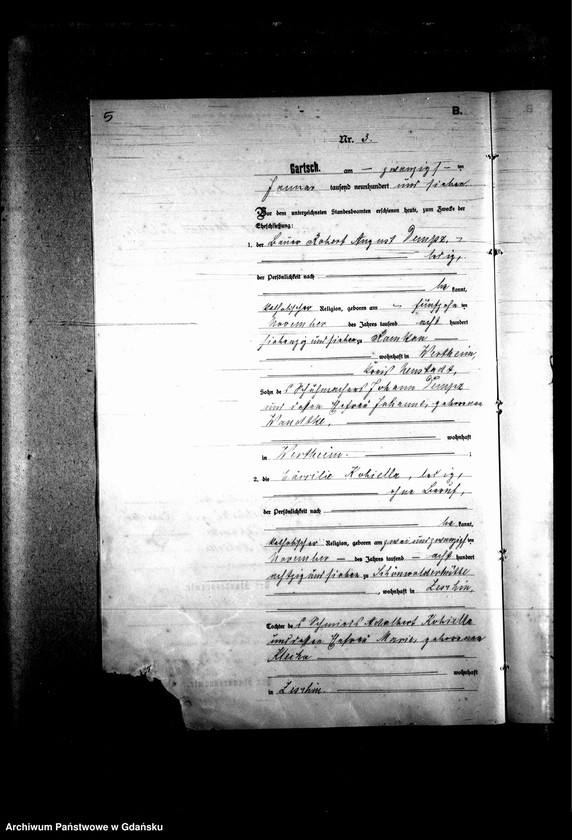 5
B.
Nr. 3.
Gartsch. am zwanzigst ten
Januar tausend neunhundert und sieben
Vor dem unterzeichneten Standesbeamten erschienen heute, zum Zwecke der
Eheschließung:
1. der Bauer Robert August Dempz,
ledig,
der Persönlichkeit nach
be kannt,
katholischer Religion, geboren am fünfzehn ten
November des Jahres tausend acht hundert
siebenzig und sieben zu
wohnhaft in Wertheim,
Kreis Neustadt,
Sohn des Schuhmachers Johann Dempz
und dessen Ehefrau Johanne, geborenen
Wandtke,
wohnhaft
in Wertheim.
2. die Cäcilie Kobiella, ledig,
ohne Beruf,
der Persönlichkeit nach
be kannt,
katholischer Religion, geboren am zwei und zwanzigsten
November des Jahres tausend acht hundert
achtzig und sieben zu Schönwalderhütte
, wohnhaft in
Tochter des Schmieds Adalbert Kobiella
und dessen Ehefrau Marie, geborenen
wohnhaft
in
Archiwum Państwowe w Gdańsku